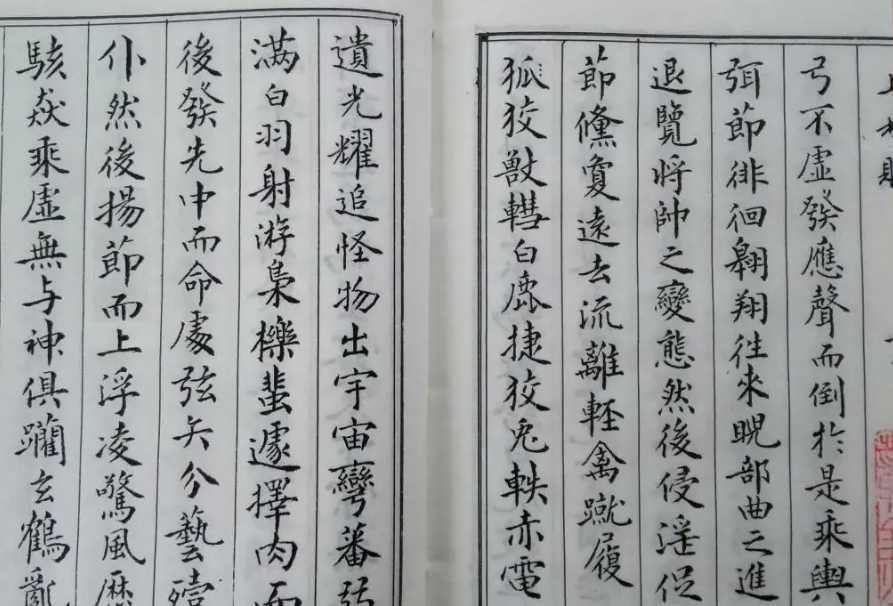 上林賦
弓不虛發應聲而倒於是乘輿
弭節徘徊翱翔往來睨部曲之進
退覽將帥之變態然後侵淫促
節儵夐遠去流離輕禽蹴履
狐狡獸轊白鹿捷狡兔軼赤電
遺光耀追怪物出宇宙彎蕃弱
滿白羽射游梟櫟蜚遽擇肉而
後發先中而命處弦矢分藝殪
仆然後揚節而上浮凌驚風歷
駭猋乘虛無与神俱躪玄鶴亂